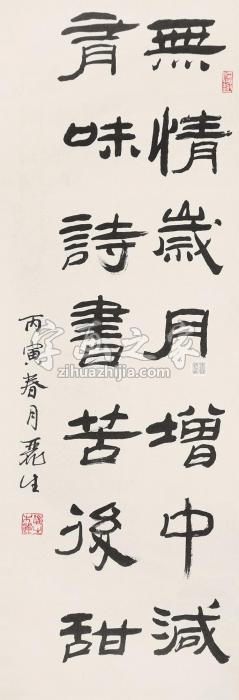 無情歲月增中減
有味詩書苦後甜
丙寅春月麗生
字画之家
zihuazhijia.com